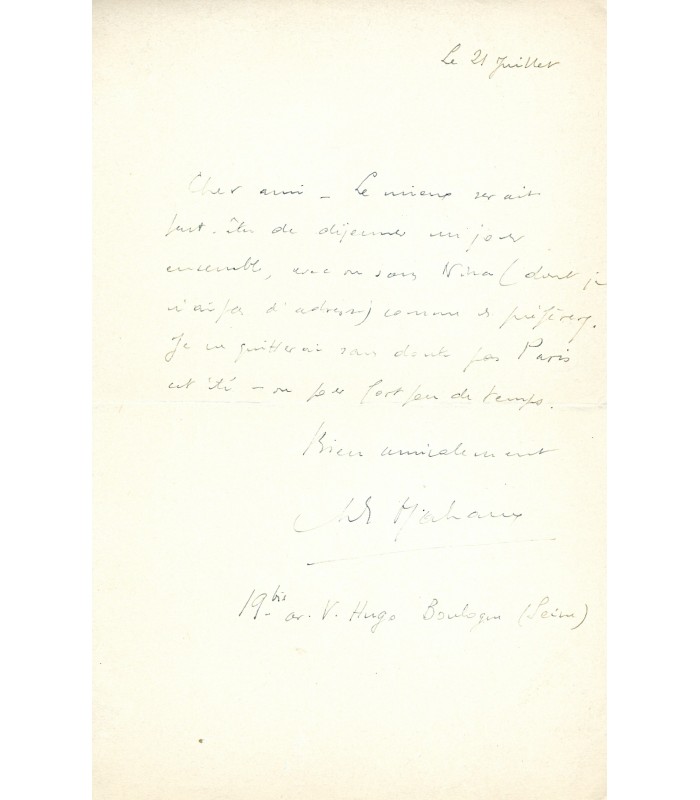 Le 21 Juillet
Cher ami - Le mieux serait
peut-être de déjeuner un jour
ensemble, avec ou sans Nina (dont je
n'ai pas d'adresse) comme
Je ne quitterai sans doute pas Paris
cet été - ou pour fort peu de temps.
Bien amicalement
19 bis av. V. Hugo Boulogne (Seine)